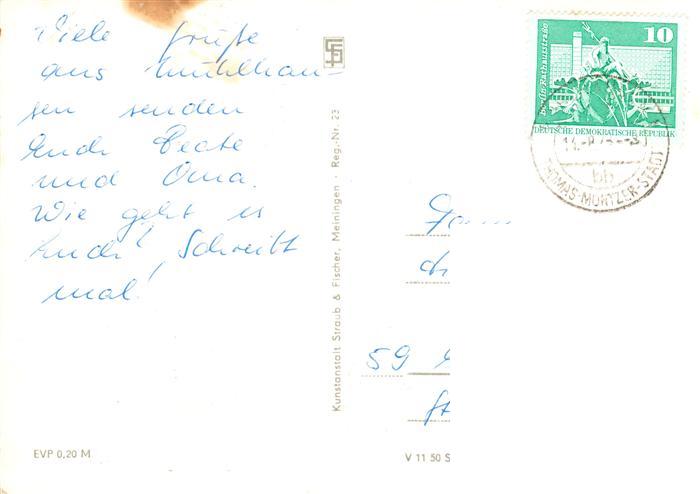 Viele Grüße
aus Mühlhau-
sen senden
Euch Beate
und Oma.
Wie geht es
Euch? Schreibt
mal!
EVP 0,20 M
Kunstanstalt Straub & Fischer, Meiningen · Reg.-Nr. 23
10
Berlin, Rathausstraße
DEUTSCHE DEMOKRATISCHE REPUBLIK
bb
THOMAS-MÜNTZER-STADT
59
V 11 50 S